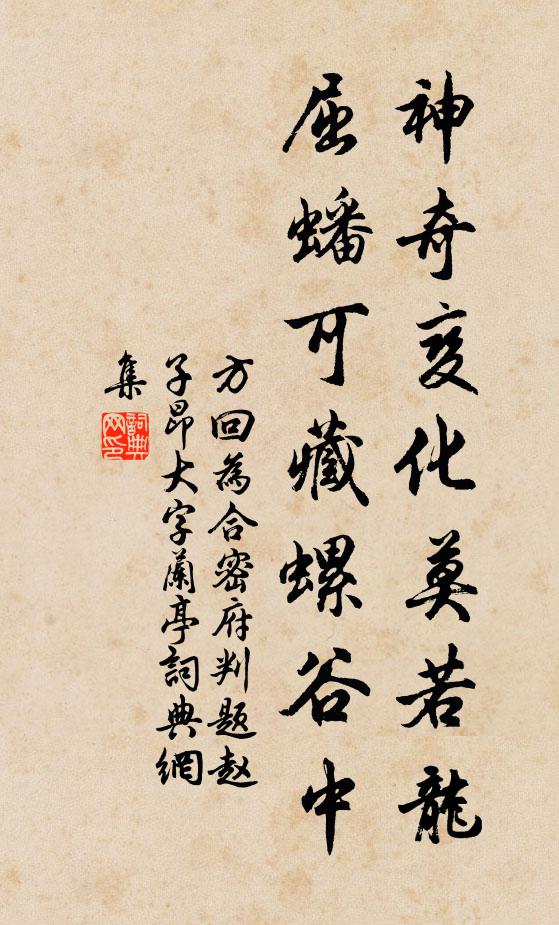 神奇变化莫若龍
屈蟠可藏螺谷中
方回為合密府判题赵
子昂大字蘭亭詞典網
集
詞典
网印